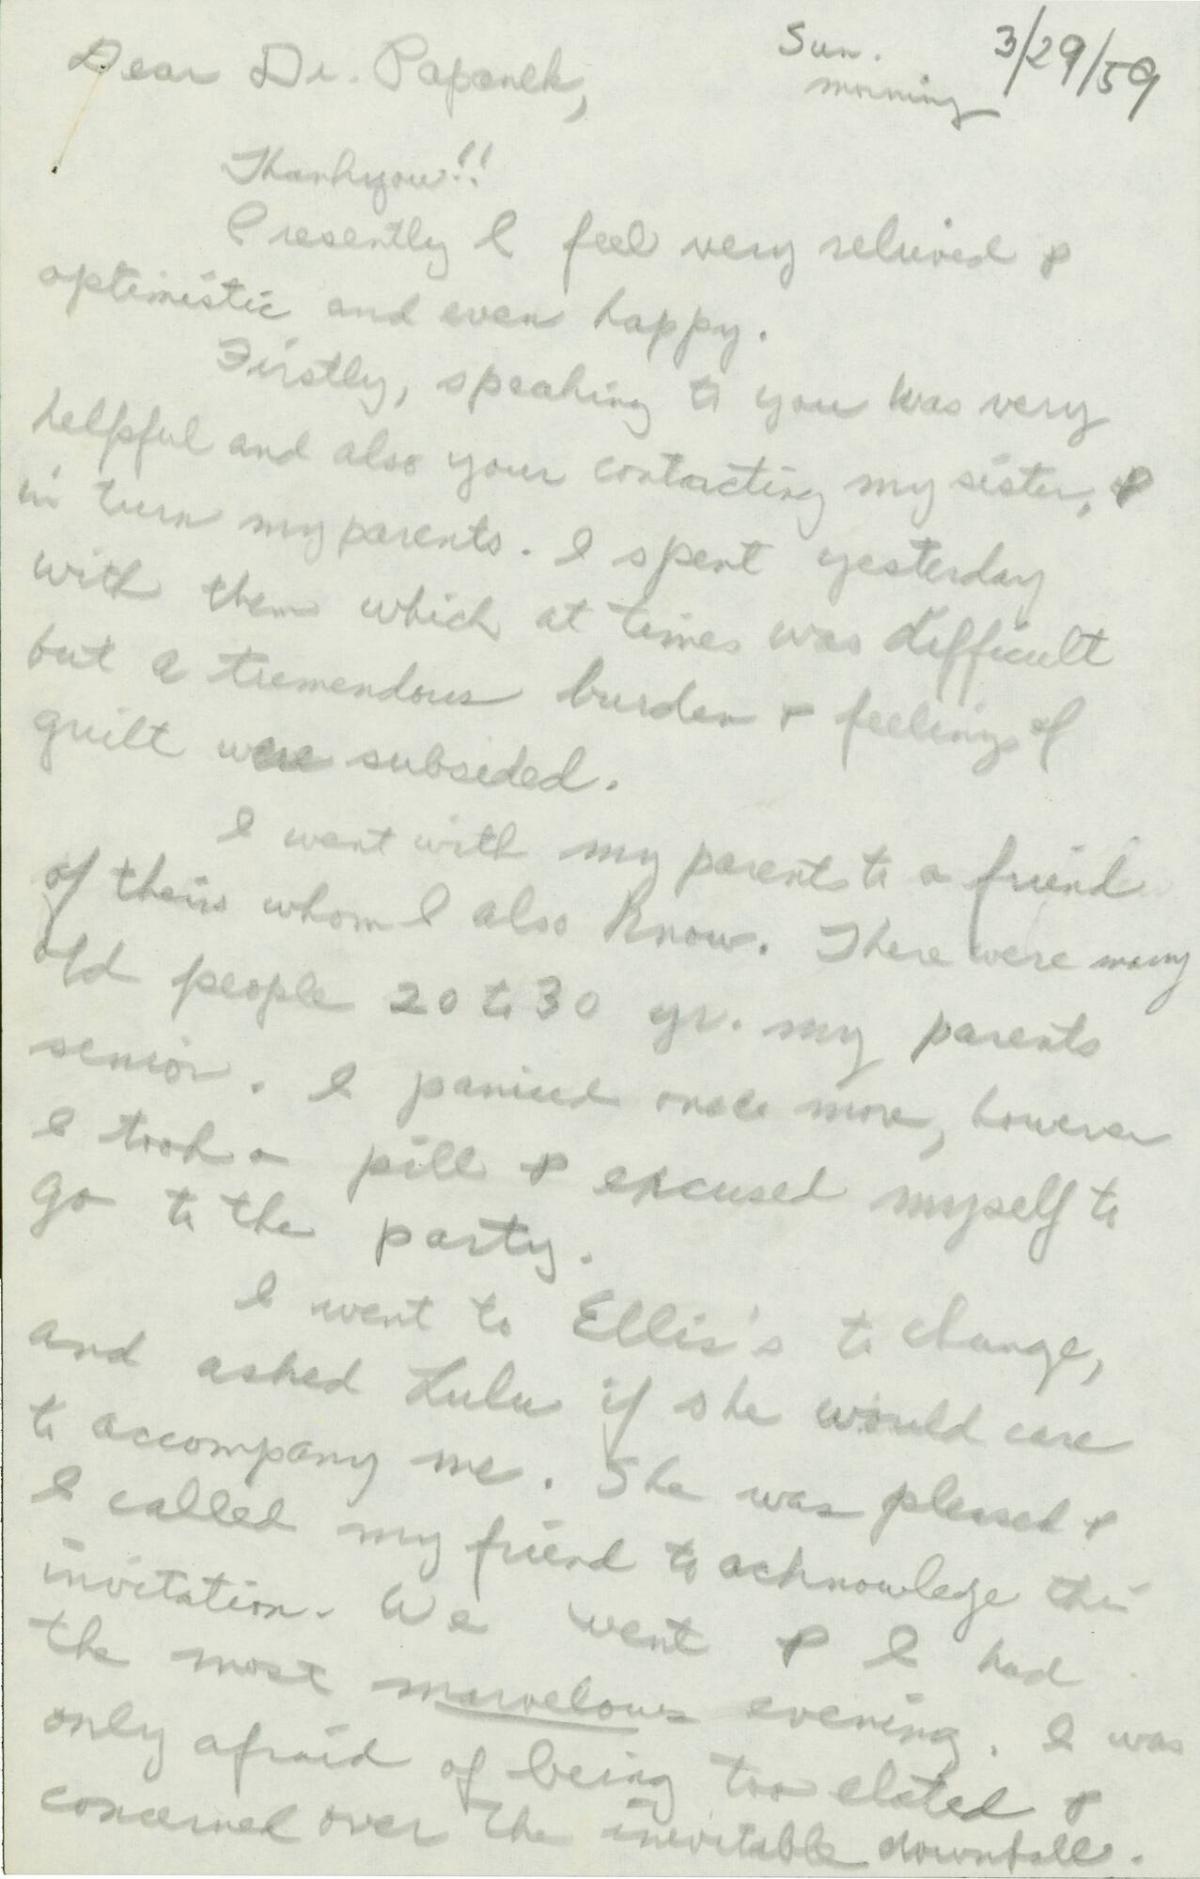 Sun. 3/29/59
morning
Dear Dr. Papanek,
Thankyou!!
Presently I feel very relieved &
optimistic and even happy.
Firstly, speaking to you was very
helpful and also your contacting my sister, &
in turn my parents. I spent yesterday
with them which at times was difficult
but a tremendous burden & feelings of
guilt were subsided.
I went with my parents to a friend
of theirs whom I also know. There were many
old people 20 to 30 yr. my parents
senior. I paniced once more, however
I took a pill & excused myself to
go to the party.
I went to Ellis's to change,
and asked Lulu if she would care
to accompany me. She was pleased &
I called my friend to acknowlege the
invitation. We went & I had
the most marvelous evening. I was
only afraid of being too elated &
concerned over the inevitable downfall.